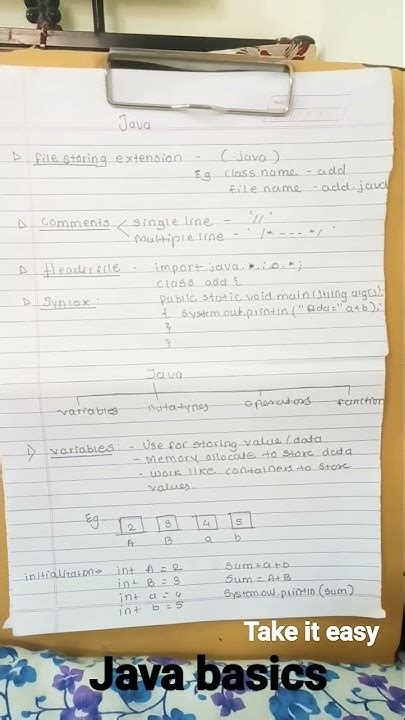 Java
▷ file storing extension - (.java)
Eg class name - add
file name - add.java
▷ comments < single line - '//'
multiple line - '/* --- */'
▷ Header file - import java.*.i.o.*;
class add {
▷ Syntax: public static void main(String arg[]);
{ System.out.println("Add="a+b);
}
}
Java
variables Datatypes operators function
1) variables: - Use for storing value/data
- Memory allocate to store data
- work like containers to store
values.
Eg. 2 3 4 5
A B a b
initialization → int A = 2 Sum=a+b
int B = 3 Sum = A+B
int a = 4 System.out.println(sum)
int b = 5
Take it easy
Java basics